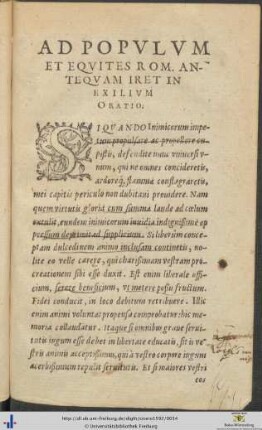 AD POPVLVM
ET EQVITES ROM. AN-
TEQVAM IRET IN
EXILIVM
ORATIO.
SI QVANDO inimicorum impe-
tum propulsare ac propellere cu-
pistis, defendite nunc vniuersi v-
num, qui ne omnes concideretis,
arderetq́; flamma conflagraretis,
mei capitis periculo non dubitaui prouidere. Nam
quem virtutis gloria cum summa laude ad cœlum
extulit, eundem inimicorum inuidia indignissimè op
pressum depriuat ad supplicium. Si liberûm conce-
ptam dulcedinem animo inclusam continetis, no-
lite eo velle carere, qui charissimam vestram pro-
creationem sibi esse duxit. Est enim liberale offi-
cium, serere beneficium, vt metere possis fructum.
Fidei conducit, in loco debitum retribuere. Illic
enim animi voluntas propensa comprobatur hîc me
moria collaudatur. Itaque si omnibus graue serui-
tutis iugum esse debet in libertate educatis, fit is ve-
stris animis acceptissimus, qui à vestro corpore iugum
acerbissimum repulit seruitutis. Et si maiores vestri
eos
http://dl.ub.uni-freiburg.de/diglit/
© Universitätsbibliothek Freiburg